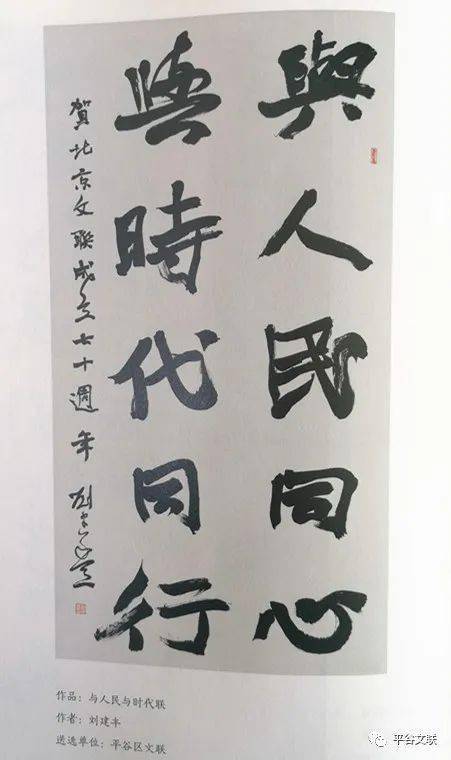 與人民同心
與時代同行
賀北京文聯成立七十週年 劉建豐
作品：与人民与时代联
作者：刘建丰
送选单位：平谷区文联
平谷文联